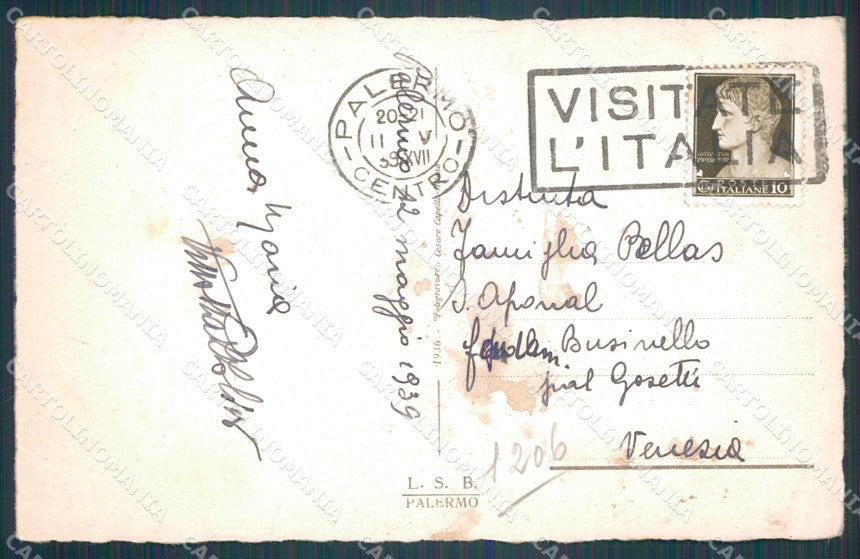 PALERMO
CENTRO
20-21
11 V
39 XVII
VISITATE
L'ITALIA
POSTE
ITALIANE 10
Palermo 12 maggio 1939
Anna Maria
Distinta
Famiglia Bellas
S. Aponal
Businello
pial Gosetti
Venezia
1206
1936 - "Fotogravure" Cesare Capello
L. S. B.
PALERMO
CARTOLINOMANIA